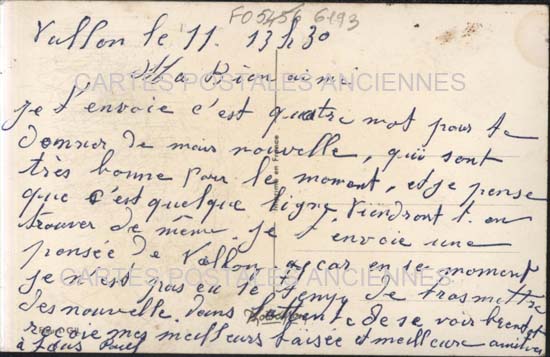 FO 5456 6193
Vallon le 11. 13h30
Ma Bien aimé
CARTES POSTALES ANCIENNES
je t'envoie c'est quatre mot pour te
donner de mais nouvelle, qui sont
très bonne pour le moment, et je pense
que c'est quelque ligne viendront t. en
trouver de même. je t'envoie une
pensée de Vallon, car en se moment
je n'est pas eu le temps de trasmettre
CARTES POSTALES ANCIENNES
des nouvelle. dans l'attente de se voir
recoie mes meilleurs baisée et meilleure amitiés
à tous
Imprimé en France